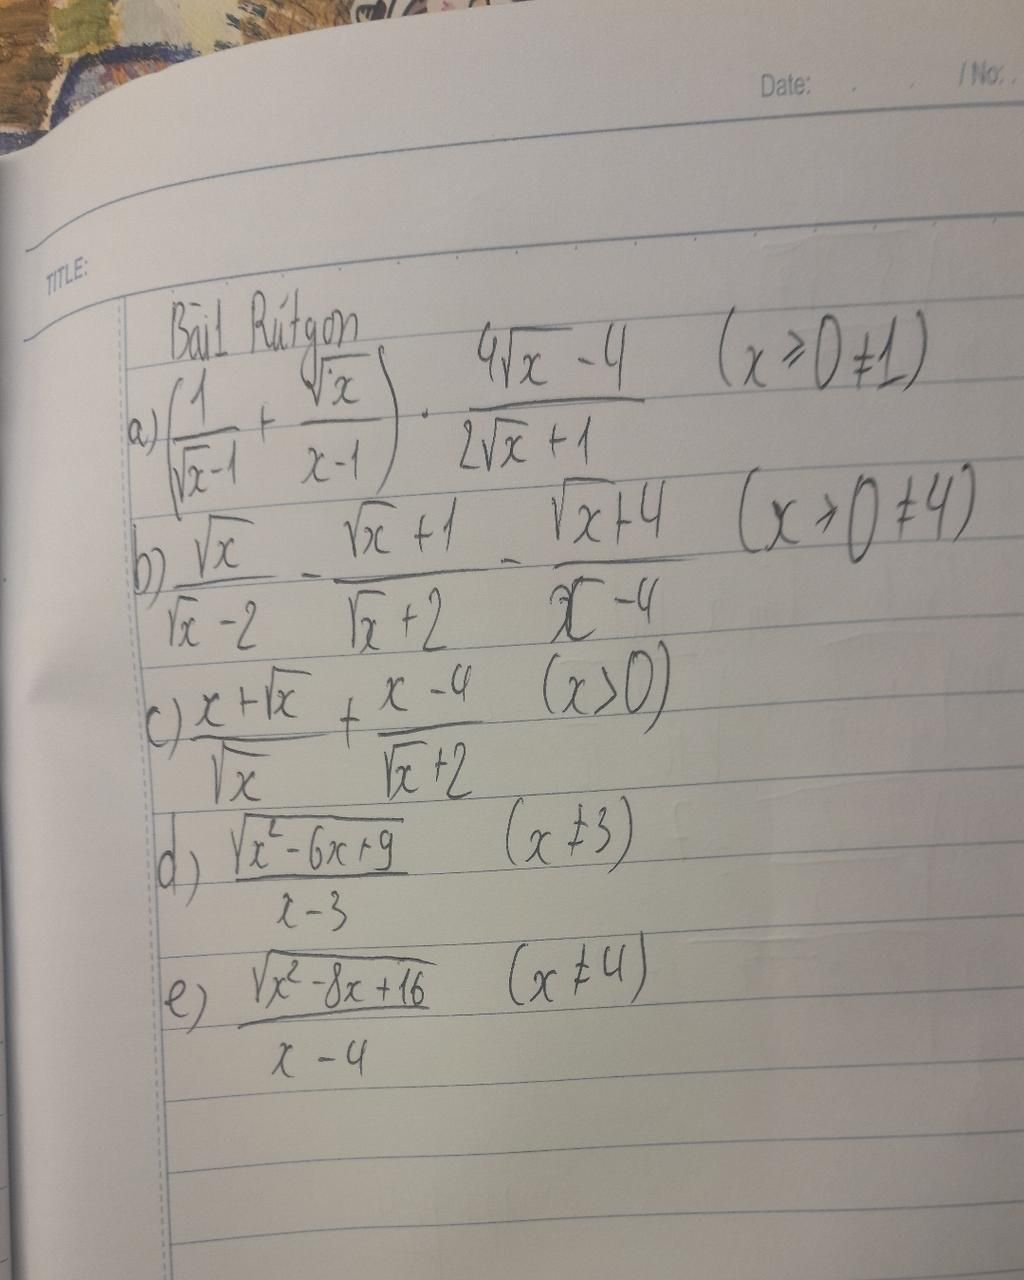 Date: . . / No: .
TITLE:
Bài1 Rútgọn
a) (1/(√x-1) + √x/(x-1)) . (4√x - 4)/(2√x + 1) (x ≥ 0 ≠ 1)
b) √x/(√x - 2) - (√x + 1)/(√x + 2) - (√x + 4)/(x - 4) (x ≥ 0 ≠ 4)
c) (x + √x)/√x + (x - 4)/(√x + 2) (x > 0)
d) √(x² - 6x + 9)/(x - 3) (x ≠ 3)
e) √(x² - 8x + 16)/(x - 4) (x ≠ 4)